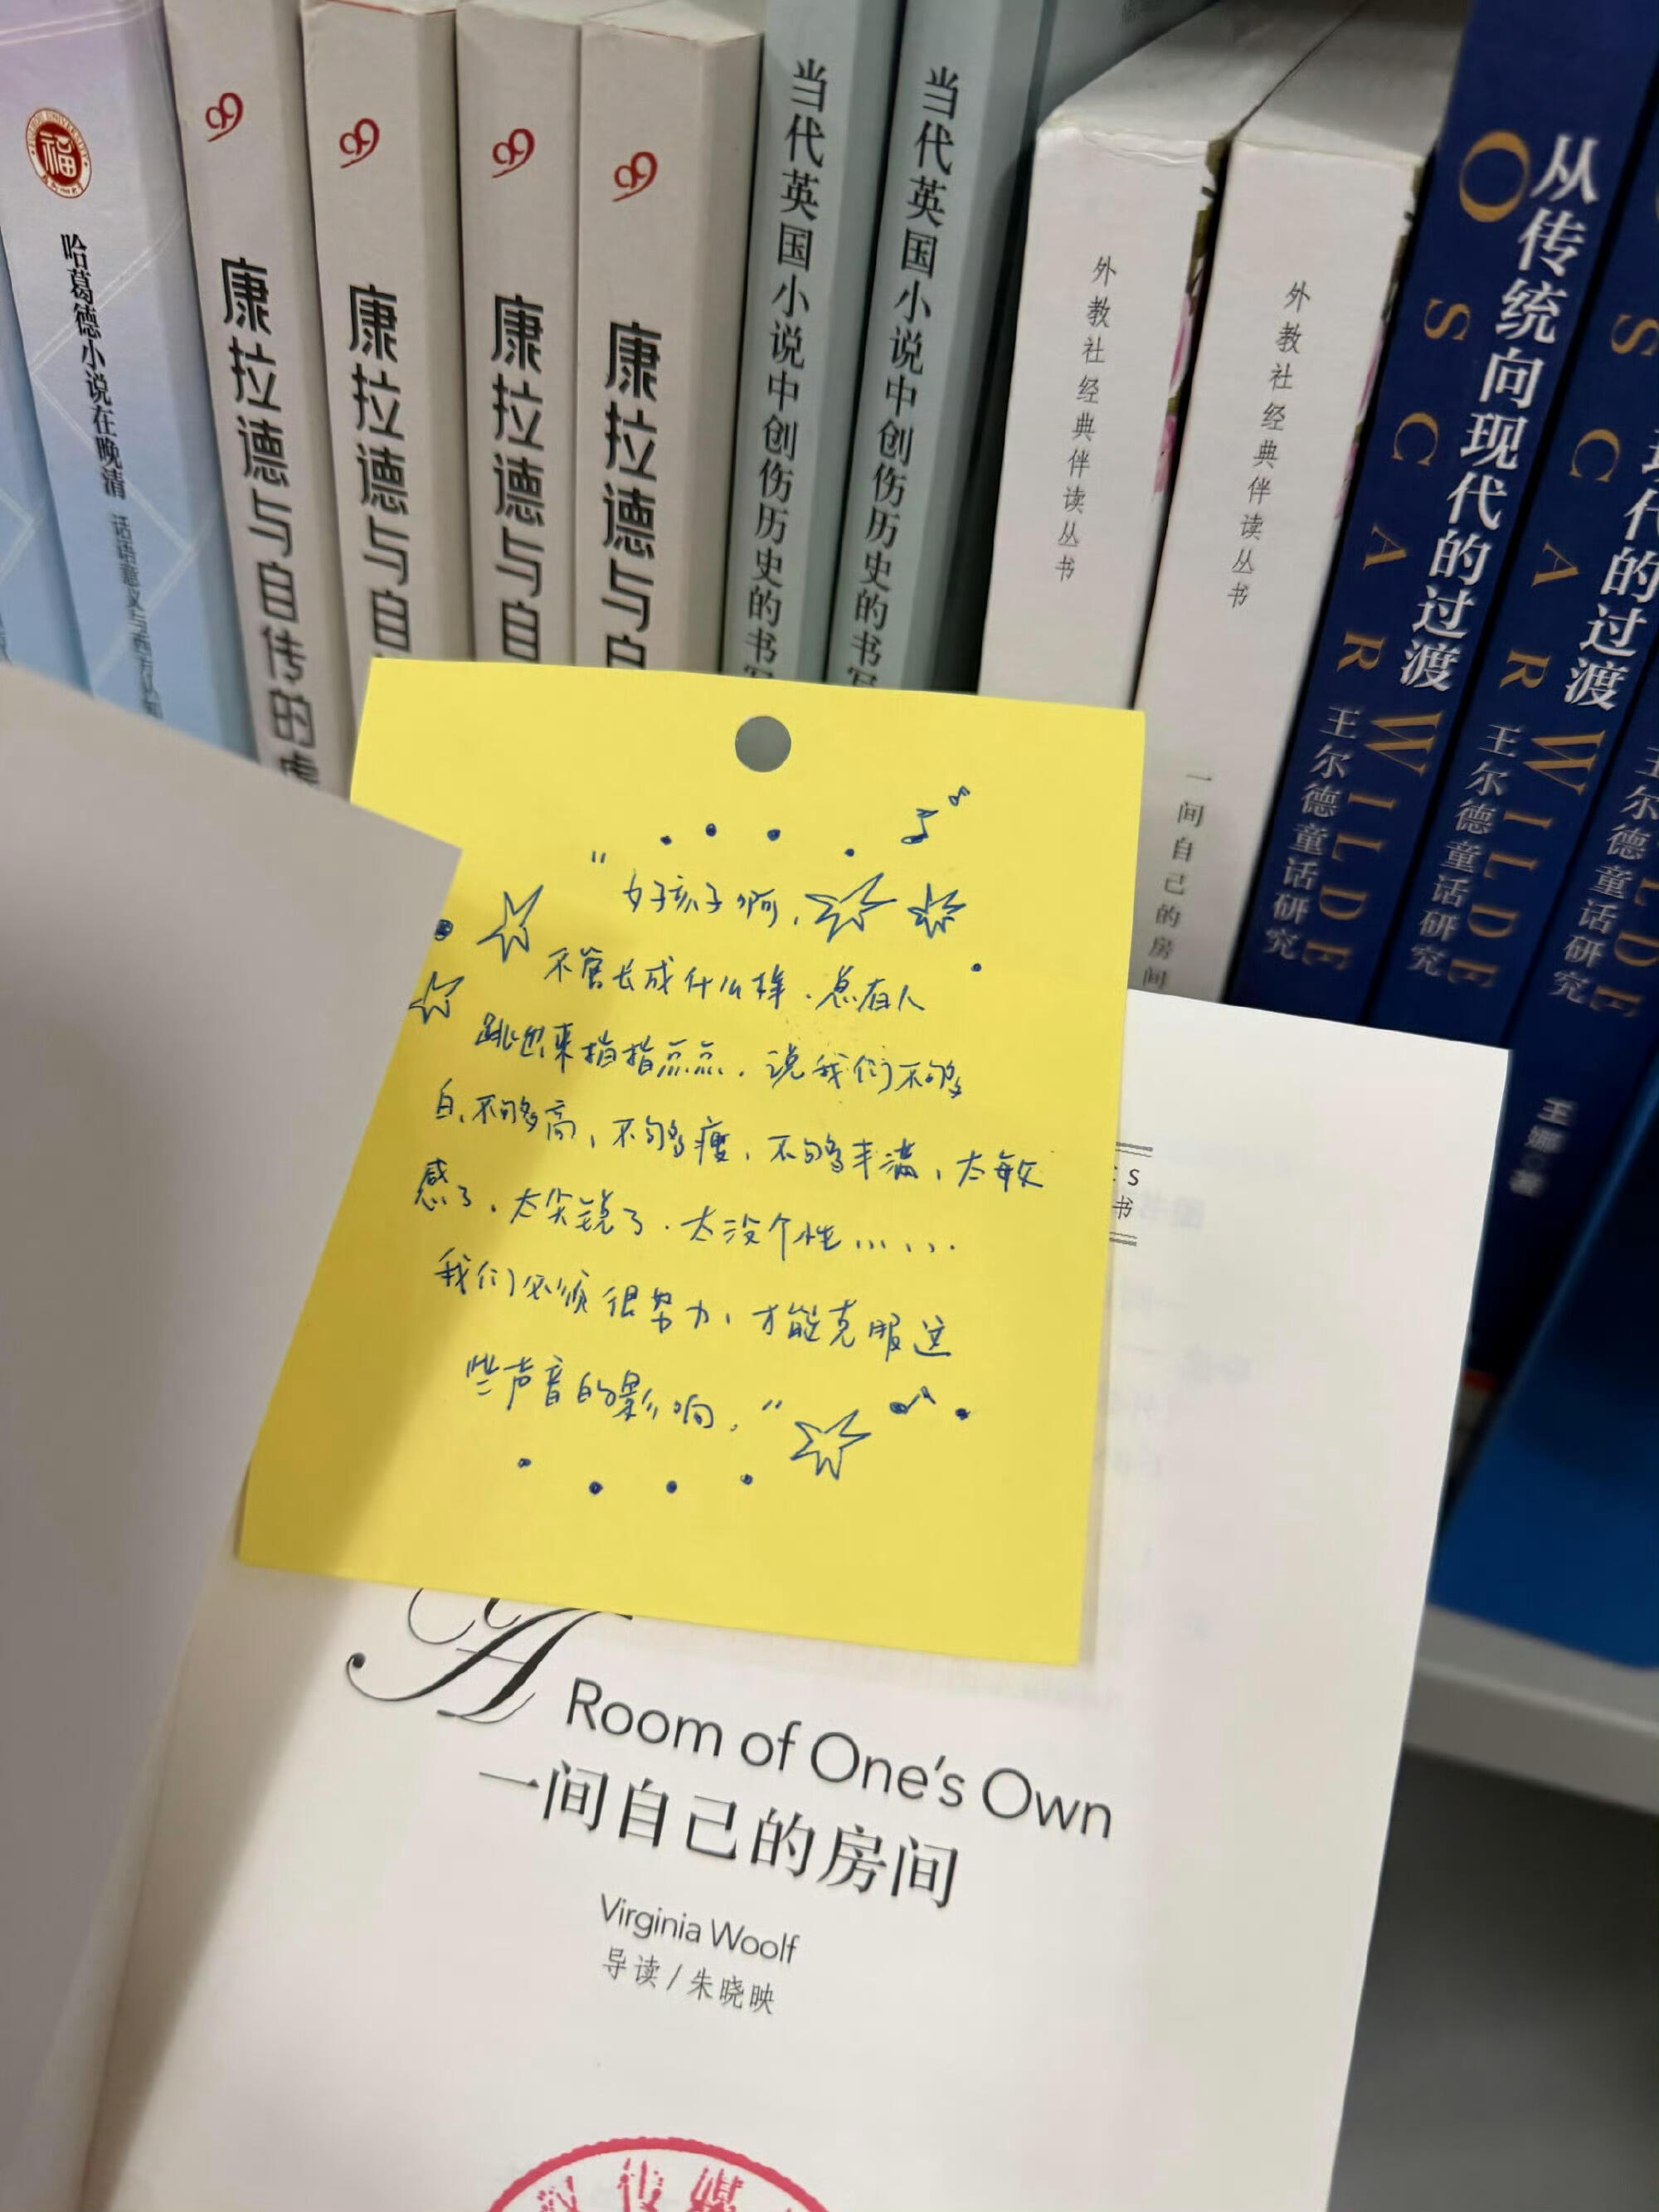 哈葛德小说在晚清
话语意义与西方认知
99
康拉德与自传的虚
99
康拉德与自
99
康拉德与自
99
康拉德与自
当代英国小说中创伤历史的书写
当代英国小说中创伤历史的书写
外教社经典伴读丛书
外教社经典伴读丛书
一间自己的房间
从传统向现代的过渡
OSCAR WILDE
王尔德童话研究
王娜 著
现代的过渡
SCAR WILDE
王尔德童话研究
王尔德童话研究
“女孩子啊,
不管长成什么样,总有人
跳出来指指点点,说我们不够
白,不够高,不够瘦,不够丰满,太敏
感了,太尖锐了,太没个性……
我们必须很努力,才能克服这
些声音的影响。”
S
书
A Room of One's Own
一间自己的房间
Virginia Woolf
导读/朱晓映